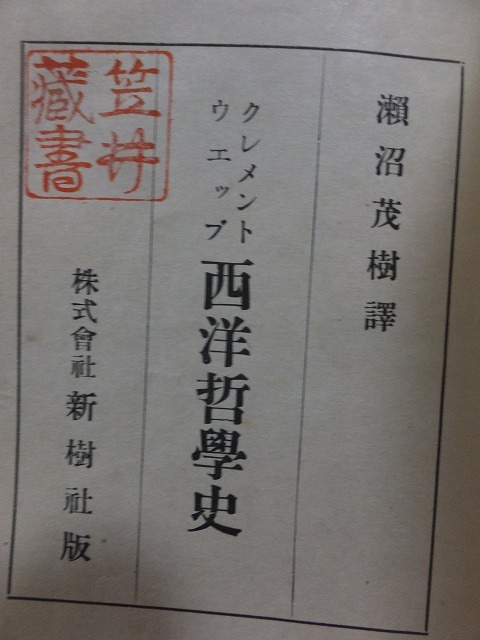 瀨沼茂樹譯
クレメント
ウエッブ
西洋哲學史
株式會社新樹社版
笠井
藏書